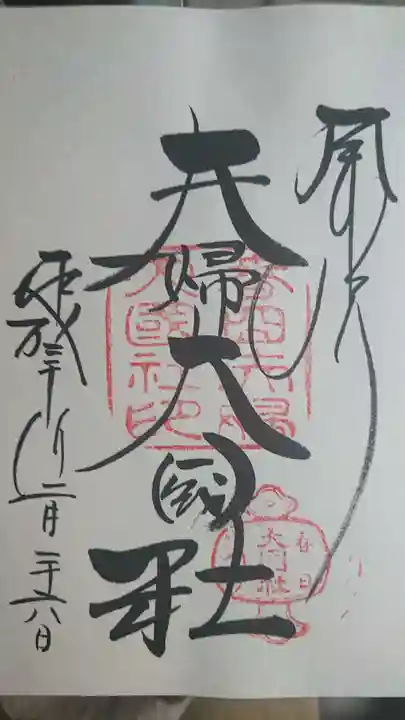 奉拝
夫婦大國社
平成三十年二月二十六日
春日夫婦
大國社印
春日
大國社